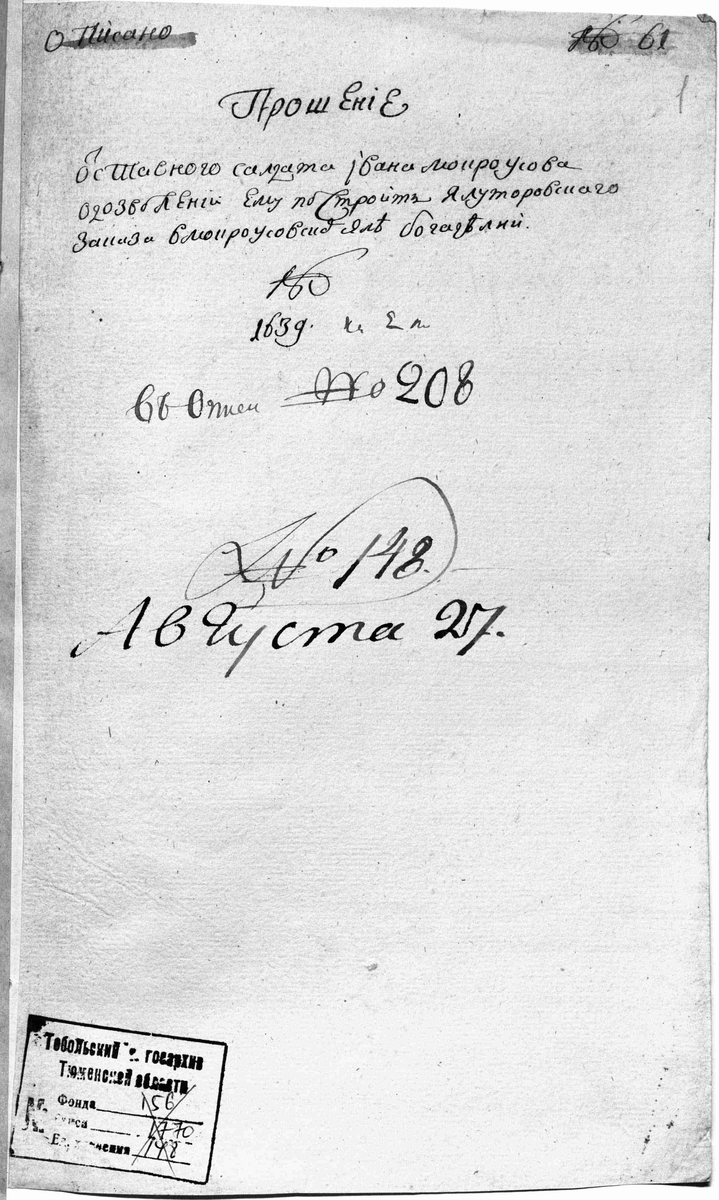 Описано
160 61
1
Прошение
отставного салдата івана мокроусова
одозволениі ему построить Ялуторовского
Заказа вмокроусовск богаделни.
160
1639.
въ Опись №o 208
№o 148.
Августа 27.
Тобольский госархив
Тюменской области
Фонда 156
1770
148